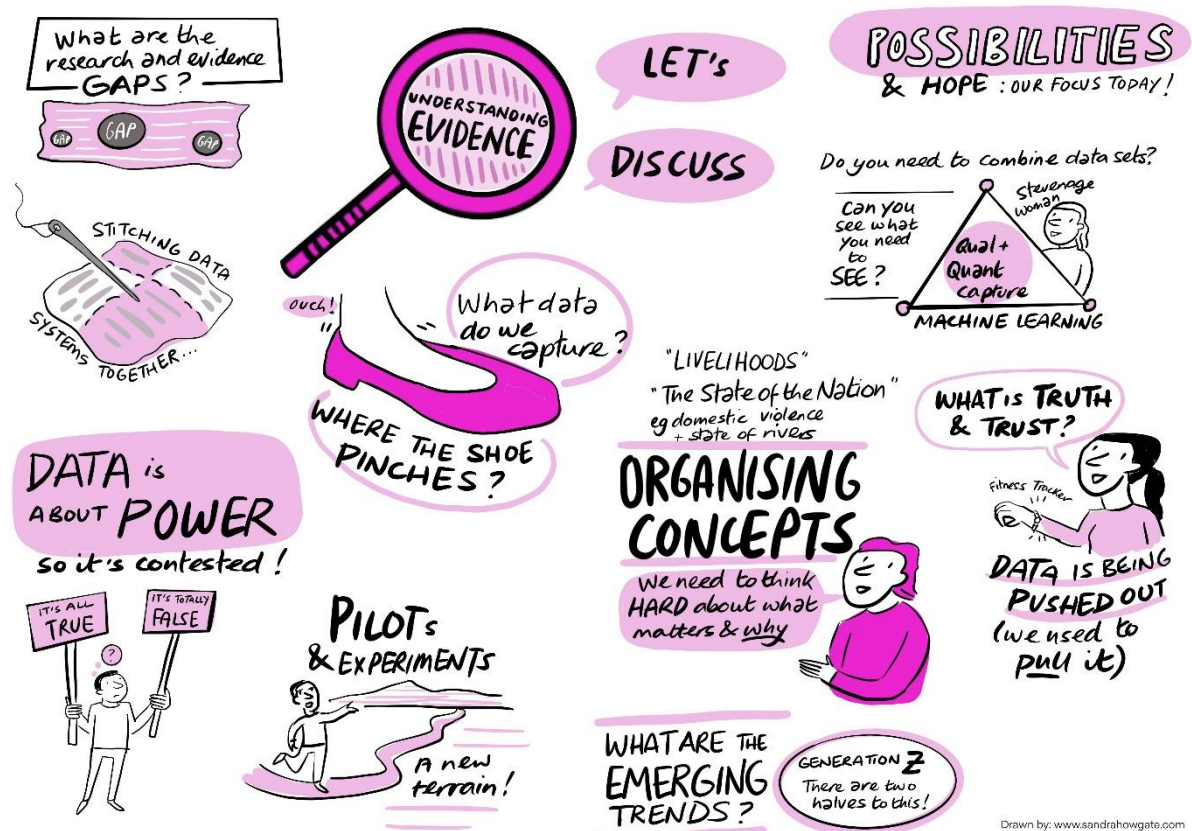 What are the
research and evidence
GAPS?
GAP
GAP
GAP
STITCHING DATA
SYSTEMS TOGETHER...
UNDERSTANDING
EVIDENCE
LET's
DISCUSS
POSSIBILITIES
& HOPE : OUR FOCUS TODAY!
Do you need to combine data sets?
Can you
see what
you need
to
SEE?
Stevenage
Woman
Qual +
Quant
Capture
MACHINE LEARNING
ouch!
What data
do we
capture?
WHERE THE SHOE
PINCHES?
"LIVELIHOODS"
"The State of the Nation"
eg domestic violence
+ state of rivers
ORGANISING
CONCEPTS
We need to think
HARD about what
matters & why
WHAT IS TRUTH
& TRUST?
Fitness Tracker
DATA IS BEING
PUSHED OUT
(we used to
pull it)
DATA is
ABOUT POWER
so it's contested!
IT'S ALL
TRUE
IT'S TOTALLY
FALSE
?
PILOTs
& EXPERIMENTS
A new
terrain!
WHAT ARE THE
EMERGING
TRENDS?
GENERATION Z
There are two
halves to this!
Drawn by: www.sandrahowgate.com